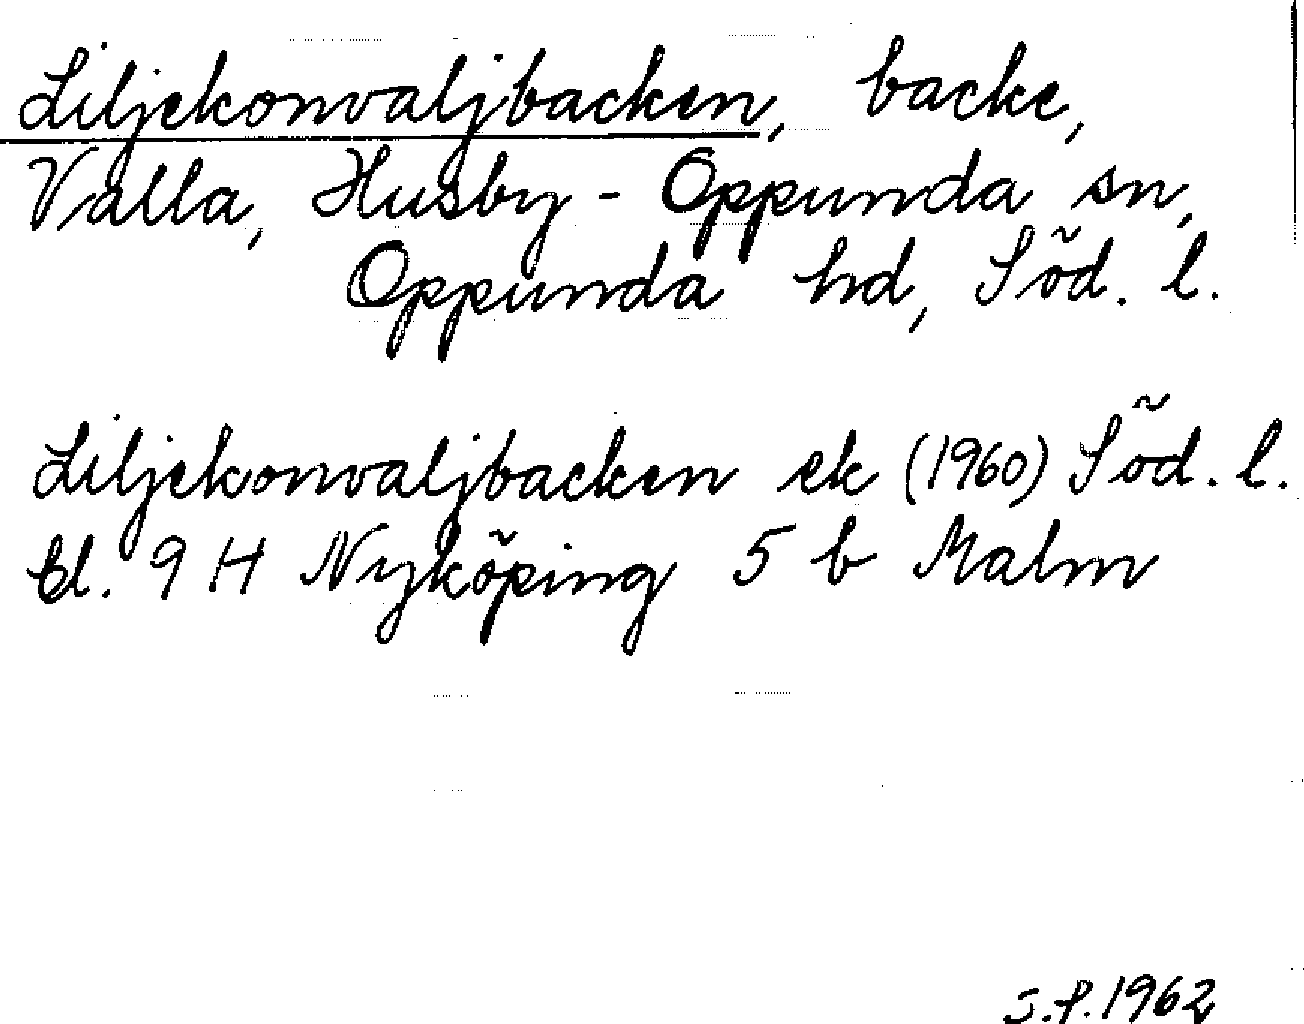 Liljekonvaljbacken, backe,
Valla, Husby-Oppunda sn,
Oppunda hd, Söd. l.
Liljekonvaljbacken ek (1960) Söd. l.
bl. 9 H Nyköping 5 b Malm
S.P. 1962